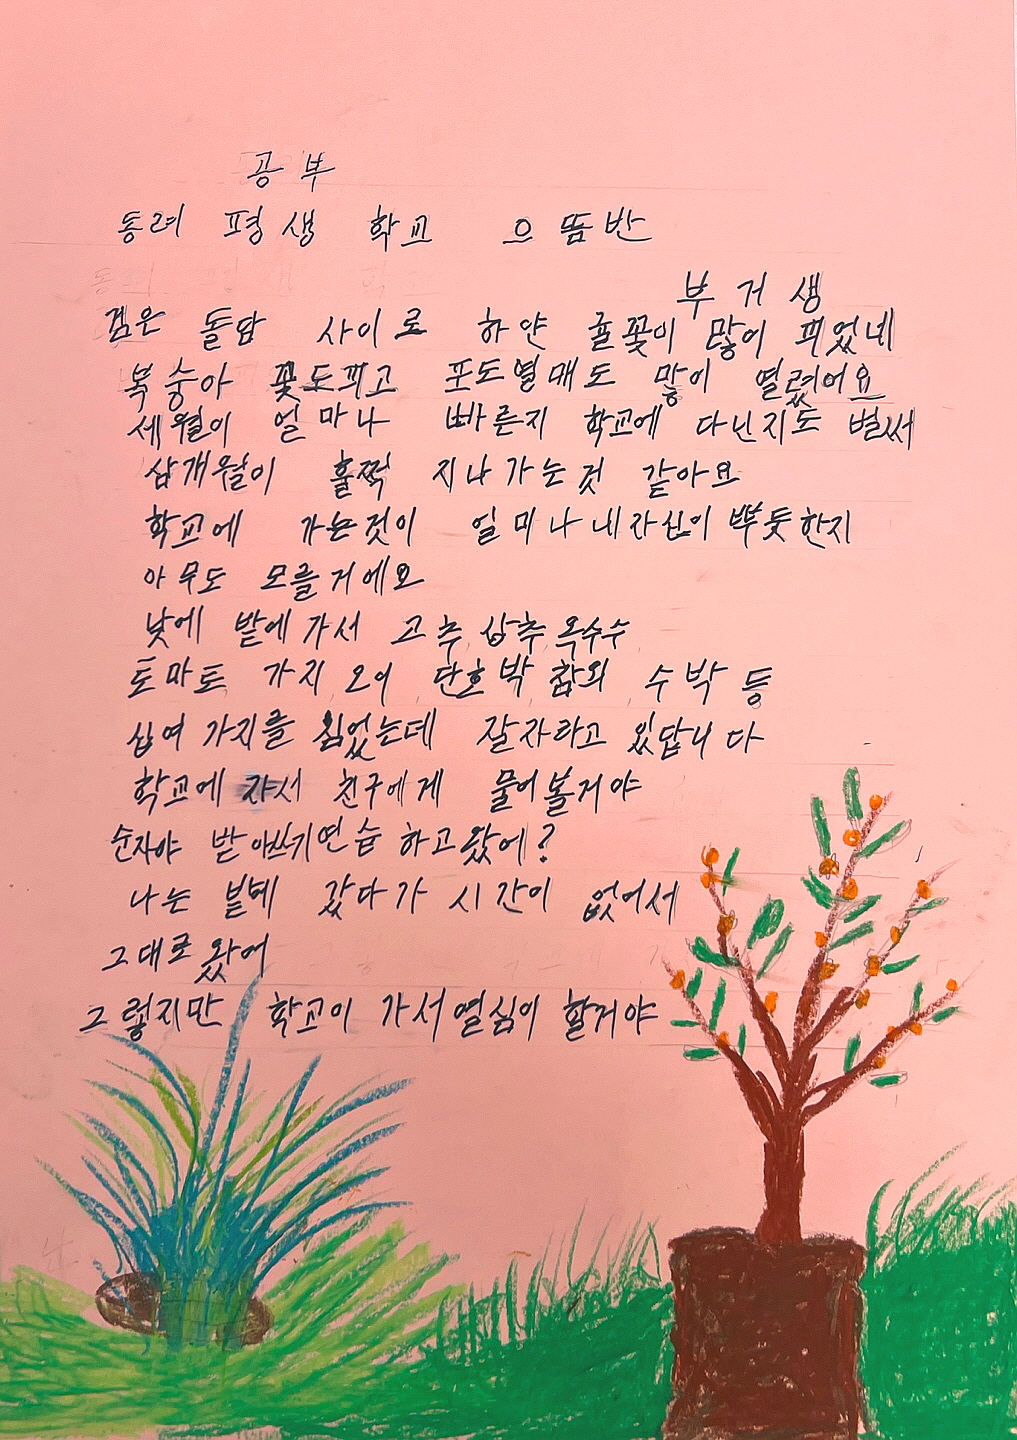 공부
동려 평생 학교 으뜸반
부거생
검은 돌담 사이로 하얀 귤꽃이 많이 피었네
복숭아 꽃도피고 포도열매도 많이 열렸어요
세월이 얼마나 빠른지 학교에 다닌지도 벌써
삼개월이 훌쩍 지나가는것 같아요
학교에 가는것이 얼마나 내자신이 뿌듯한지
아무도 모를거에요
낮에 밭에가서 고추, 상추, 옥수수,
토마토, 가지, 오이, 단호박, 참외, 수박 등
십여 가지를 심었는데 잘자라고 있답니다
학교에 가서 친구에게 물어볼거야
순자야 받아쓰기연습 하고왔에?
나는 밭에 갔다가 시간이 없어서
그대로 왔어
그렇지만 학교이 가서열심이 할거야